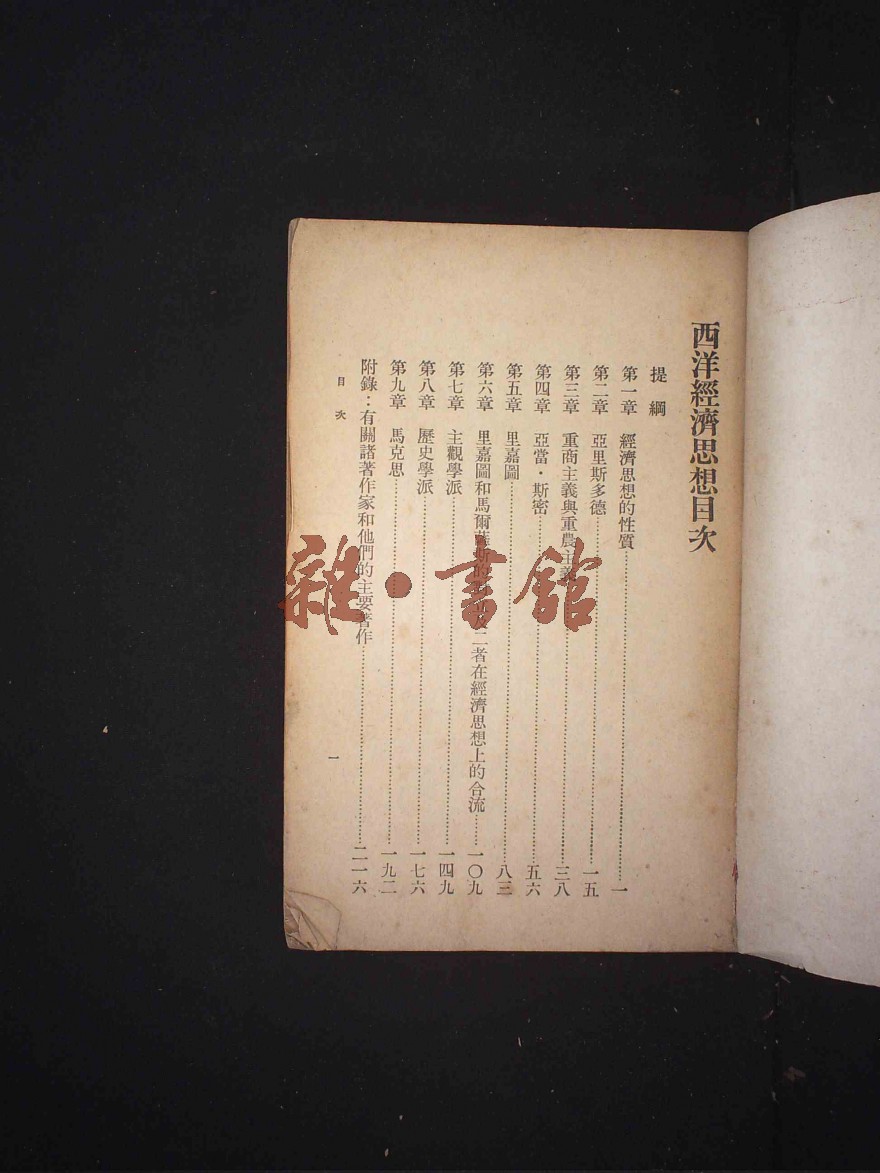 西洋經濟思想目次
提綱
第一章 經濟思想的性質……一
第二章 亞里斯多德……一五
第三章 重商主義與重農主義……三八
第四章 亞當·斯密……五六
第五章 里嘉圖……八三
第六章 里嘉圖和馬爾薩斯的 及二者在經濟思想上的合流……一〇九
第七章 主觀學派……一四九
第八章 歷史學派……一七六
第九章 馬克思……一九二
附錄：有關諸著作家和他們的主要著作……二一六
目次
一
雜·書館